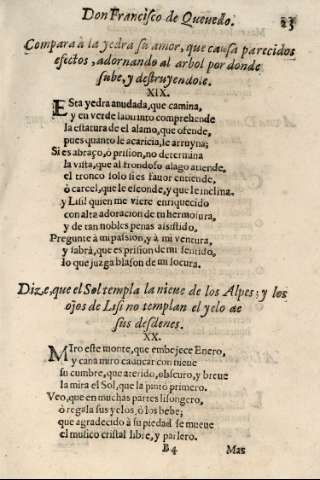 Don Francisco de Quevedo. 23
Compara à la yedra su amor, que causa parecidos
efectos, adornando al arbol por donde
sube, y destruyendole.
XIX.
ESta yedra anudada, que camina,
y en verde laberinto comprehende
la estatura de el alamo, que ofende,
pues quanto le acaricia, le arruyna;
Si es abraço, ò prision, no determina
la vista, que al frondoso alago atiende,
el tronco solo si es fauor entiende,
ò carcel, que le esconde, y que le inclina.
y Lisi! quien me viere enriquecido
con alta adoracion de tu hermosura,
y de tan nobles penas assistido,
Pregunte à mi passion, y à mi ventura,
y sabrà, que es prision de mi sentido,
lo que juzga blason de mi locura.
Dize, que el Sol templa la nieue de los Alpes; y los
ojos de Lisi no templan el yelo de
sus desdenes.
XX.
MIro este monte, que embejece Enero,
y cana miro caducar con nieue
su cumbre, que aterido, obscuro, y breue
la mira el Sol, que la pintò primero.
Veo, que en muchas partes lisongero,
ò regala sus yelos, ò los bebe;
que agradecido à su piedad se mueue
el musico cristal libre, y parlero.
B4 Mas